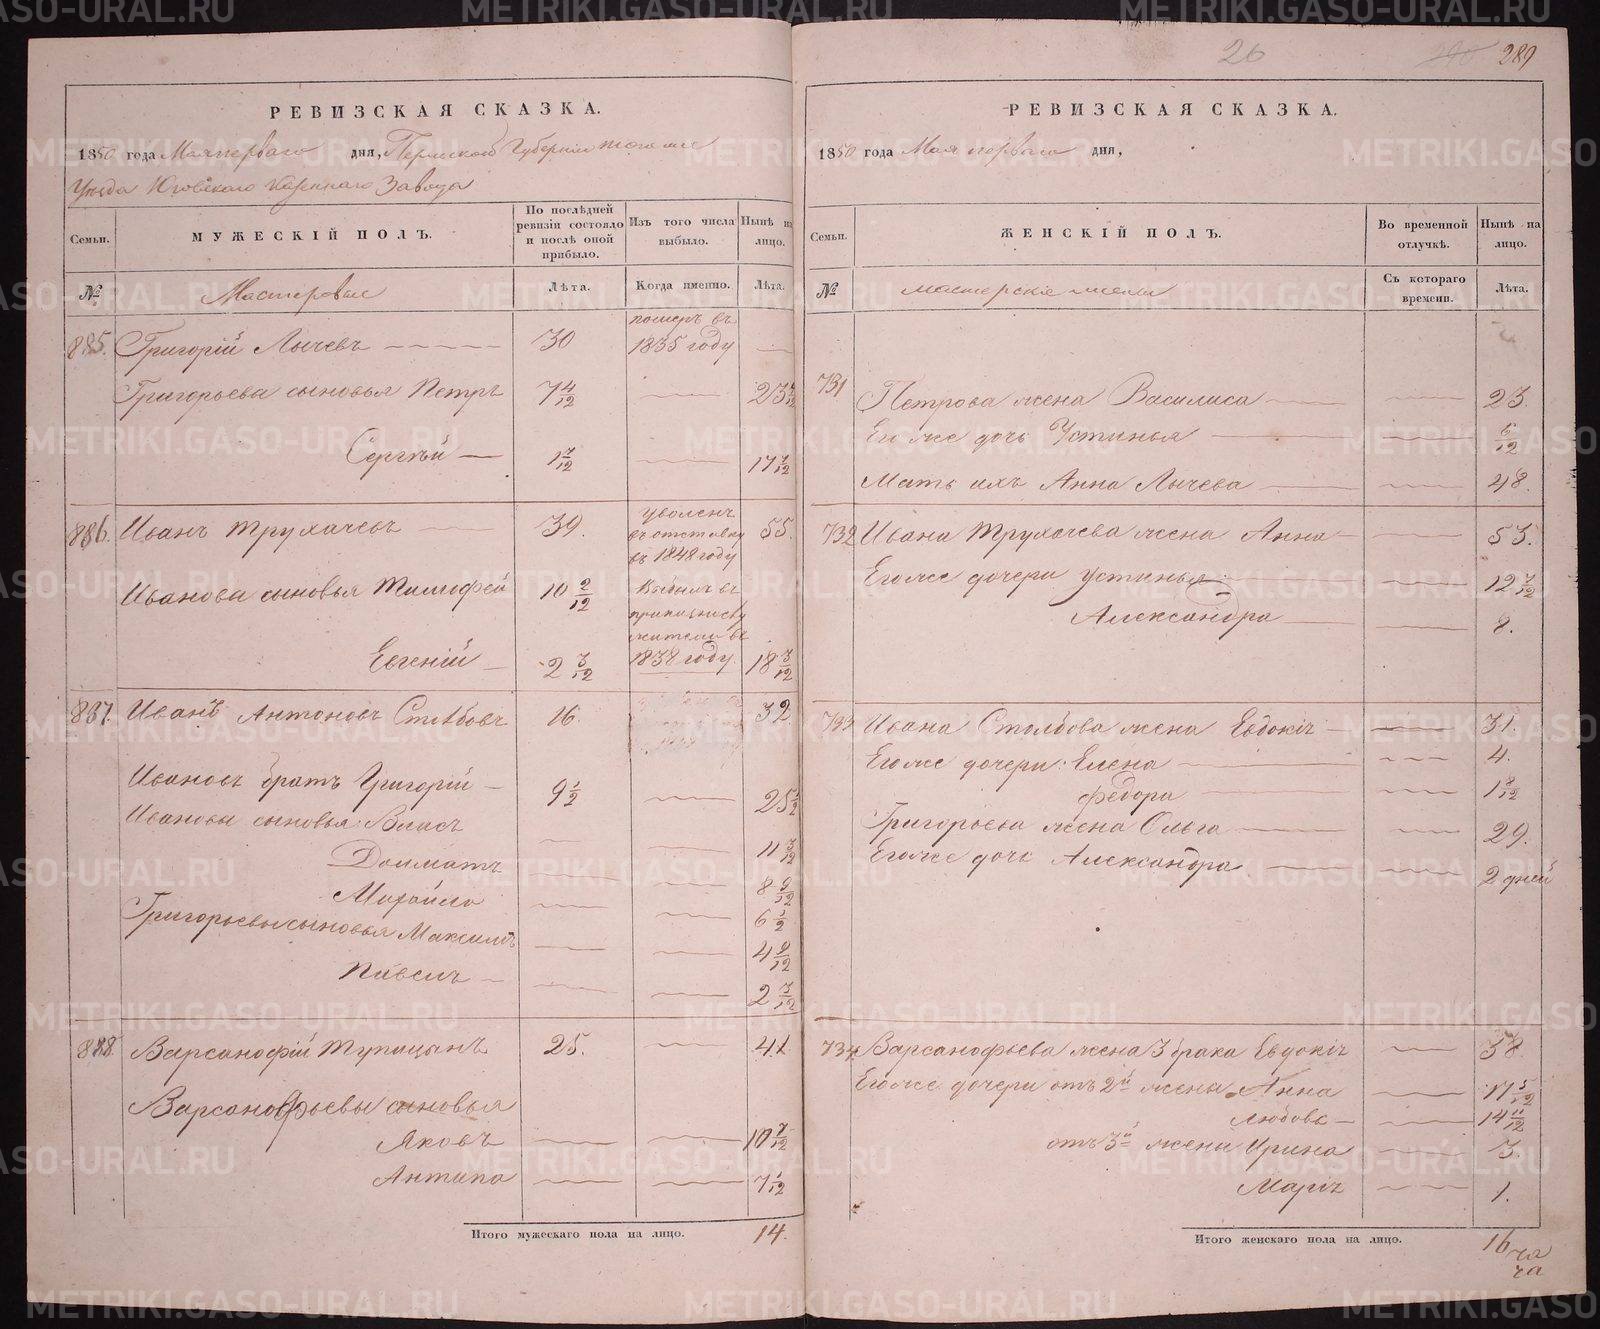 26 289
РЕВИЗСКАЯ СКАЗКА.
1850 года Мая перваго дня, Пермской Губернии того же
Уѣзда Юговскаго Казеннаго Завода
Семьи. МУЖЕСКІЙ ПОЛЪ. По послѣдней ревизіи состояло и послѣ оной прибыло. Изъ того числа выбыло. Нынѣ на лицо.
№ Мастеровые Лѣта. Когда именно. Лѣта.
885. Григорій Лычевъ 30 померъ въ 1835 году
Григорьева сыновья Петръ 7 4/12 23 4/12
Сергѣй 1 7/12 17 7/12
886. Иванъ Трухачевъ 39. уволенъ въ отставку въ 1848 году 55.
Иванова сыновья Тимофей 10 2/12 Выбылъ въ 1838 году.
Евгеній 2 3/12 18 3/12
887. Иванъ Антоновъ Столбовъ 16. 32
Ивановъ братъ Григорій 9 1/2 25 1/2
Ивановы сыновья: Власъ 11 3/12
Долматъ 8 9/12
Михайло 6 1/2
Григорьевы сыновья Максимъ 4 9/12
2 3/12
888. Варсанофій Тупицынъ 25. 41
Варсанофьевы сыновья
Яковъ 10 7/12
Антипа 7 1/12
Итого мужескаго пола на лицо. 14.
РЕВИЗСКАЯ СКАЗКА.
1850 года Мая перваго дня,
Семьи. ЖЕНСКІЙ ПОЛЪ. Во временной отлучкѣ. Нынѣ на лицо.
№ Съ котораго времени. Лѣта.
731 Петрова жена Василиса 23.
Его же дочь Устинья 6/12
Мать ихъ Анна Лычева 48.
732 Ивана Трухачева жена Анна 53.
Его же дочери Устинья 12 7/12
Александра 8.
733 Ивана Столбова жена Евдокія 31.
Его же дочери: Елена 4.
Федора 1 8/12
Григорьева жена Ольга 29.
Его же дочь Александра 2 дней
734 Варсанофьева жена 3 брака Евдокія 38.
Его же дочери отъ 2й жены Анна 17 5/12
Любовь 14 11/12
отъ 3й жены Ирина 3.
Марія 1.
Итого женскаго пола на лицо. 16
METRIKI.GASO-URAL.RU